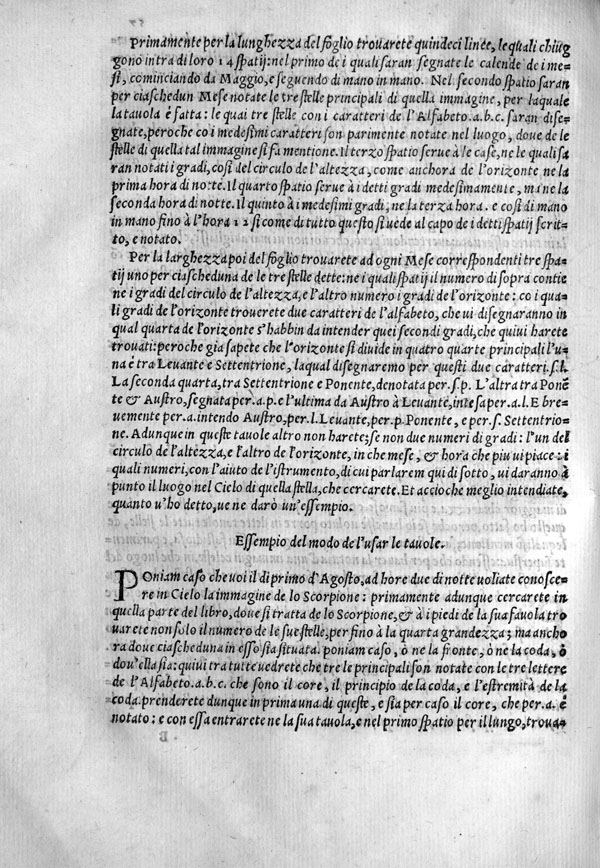 Primamente per la lunghezza del foglio trouarete quindeci linee, le quali chiug
gono intra di loro 14 spatij: nel primo de i quali saran segnate le calende de i me=
si, cominciando da Maggio, e seguendo di mano in mano. Nel secondo spatio saran
per ciaschedun Mese notate le tre stelle principali di quella immagine, per laquale
la tauola è fatta: le quai tre stelle con i caratteri de l'Alfabeto .a.b.c. saran dise=
gnate, peroche co i medesimi caratteri son parimente notate nel luogo, doue de le
stelle di quella tal immagine si fa mentione. Il terzo spatio serue à le case, ne le quali sa
ran notati i gradi, così del circulo de l'altezza, come anchora de l'orizonte ne la
prima hora di notte. Il quarto spatio serue à i detti gradi medesimamente, ma ne la
seconda hora di notte. Il quinto à i medesimi gradi, ne la terza hora. e così di mano
in mano fino à l'hora 12 si come di tutto questo si uede al capo de i detti spatij scrit=
to, e notato.
Per la larghezza poi del foglio trouarete ad ogni Mese correspondenti tre spa
tij uno per ciascheduna de le tre stelle dette: ne i quali spatij il numero di sopra contie
ne i gradi del circulo de l'altezza, e l'altro numero i gradi de l'orizonte: co i qua=
li gradi de l'orizonte trouerete due caratteri de l'alfabeto, che ui disegnaranno in
qual quarta de l'orizonte s'habbin da intender quei secondi gradi, che quiui harete
trouati: peroche gia sapete che l'orizonte si diuide in quatro quarte principali l'u=
na è tra Leuante e Settentrione, laqual disegnaremo per questi due caratteri .s.l.
La seconda quarta, tra Settentrione e Ponente, denotata per .s.p. L'altra tra Ponẽ
te & Austro, segnata per .a.p. e l'ultima da Austro à Leuante, intesa per .a.l. E bre=
uemente per .a. intendo Austro, per .l. Leuante, per .p. Ponente, e per .s. Settentrio=
ne. Adunque in queste tauole altro non harete; se non due numeri di gradi: l'un del
circulo de l'altezza, e l'altro de l'orizonte, in che mese, & hora che piu ui piace: i
quali numeri, con l'aiuto de l'istrumento, di cui parlarem qui di sotto, ui daranno à
punto il luogo nel Cielo di quella stella, che cercarete. Et accioche meglio intendiate,
quanto u'ho detto, ue ne darò un'essempio.
Essempio del modo de l'usar le tauole.
POniam caso che uoi il di primo d'Agosto, ad hore due di notte uoliate conosce=
re in Cielo la immagine de lo Scorpione: primamente adunque cercarete in
quella parte del libro, doue si tratta de lo Scorpione, & à i piedi de la sua fauola tro
uarete non solo il numero de le sue stelle, per fino à la quarta grandezza; ma ancho
ra doue ciascheduna in esso sia situata. poniam caso, ò ne la fronte, ò ne la coda, ò
dou'ella sia: quiui tra tutte uedrete che tre le principali son notate con le tre lettere
de l'Alfabeto .a.b.c. che sono il core, il principio de la coda, e l'estremità de la
coda. prenderete dunque in prima una di queste, e sia per caso il core, che per .a. è
notato: e con essa entrarete ne la sua tauola, e nel primo spatio per il lungo, troua=